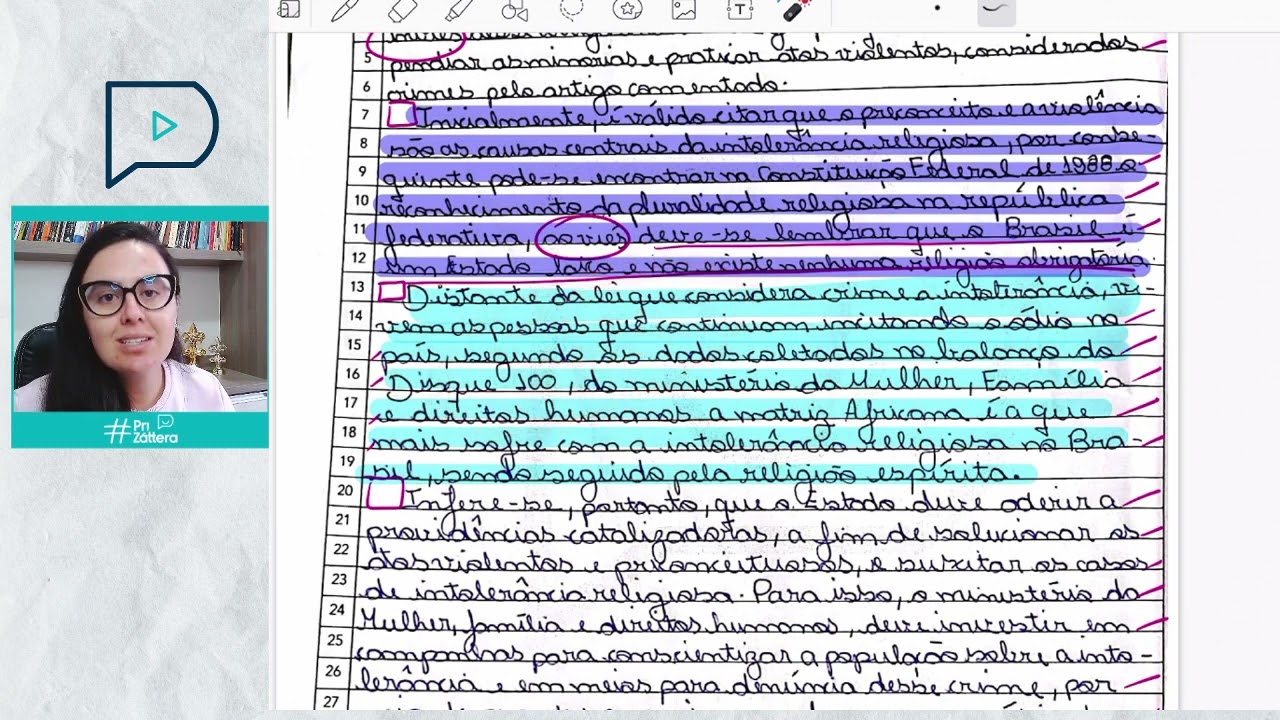 5 pendiar as minorias e praticar atos violentos, considerados
6 crimes pelo artigo comentado.
7 Inicialmente, é válido citar que o preconceito e a violência
8 são as causas centrais da intolerância religiosa, por conse-
9 guinte pode-se encontrar na Constituição Federal de 1988 o
10 reconhecimento da pluralidade religiosa na república
11 federativa, deve-se lembrar que o Brasil é
12 um Estado laico e não existe nenhuma religião obrigatória.
13 Distante da lei que considera crime a intolerância, vi-
14 vem as pessoas que continuam incitando o ódio no
15 país, segundo os dados coletados no balanço do
16 Disque 100, do ministério da Mulher, Família
17 e direitos humanos a matriz Africana é a que
18 mais sofre com a intolerância religiosa no Bra-
19 sil, sendo seguido pela religião espírita.
20 Infere-se, portanto, que o Estado deve aderir a
21 providências catalizadoras, a fim de solucionar os
22 atos violentos e preconceituosos, e os casos
23 de intolerância religiosa. Para isso, o ministério da
24 Mulher, família e direitos humanos, deve investir em
25 campanhas para conscientizar a população sobre a into-
26 lerância e em meios para denúncia desse crime, por
27
#Pri
Záttera
T